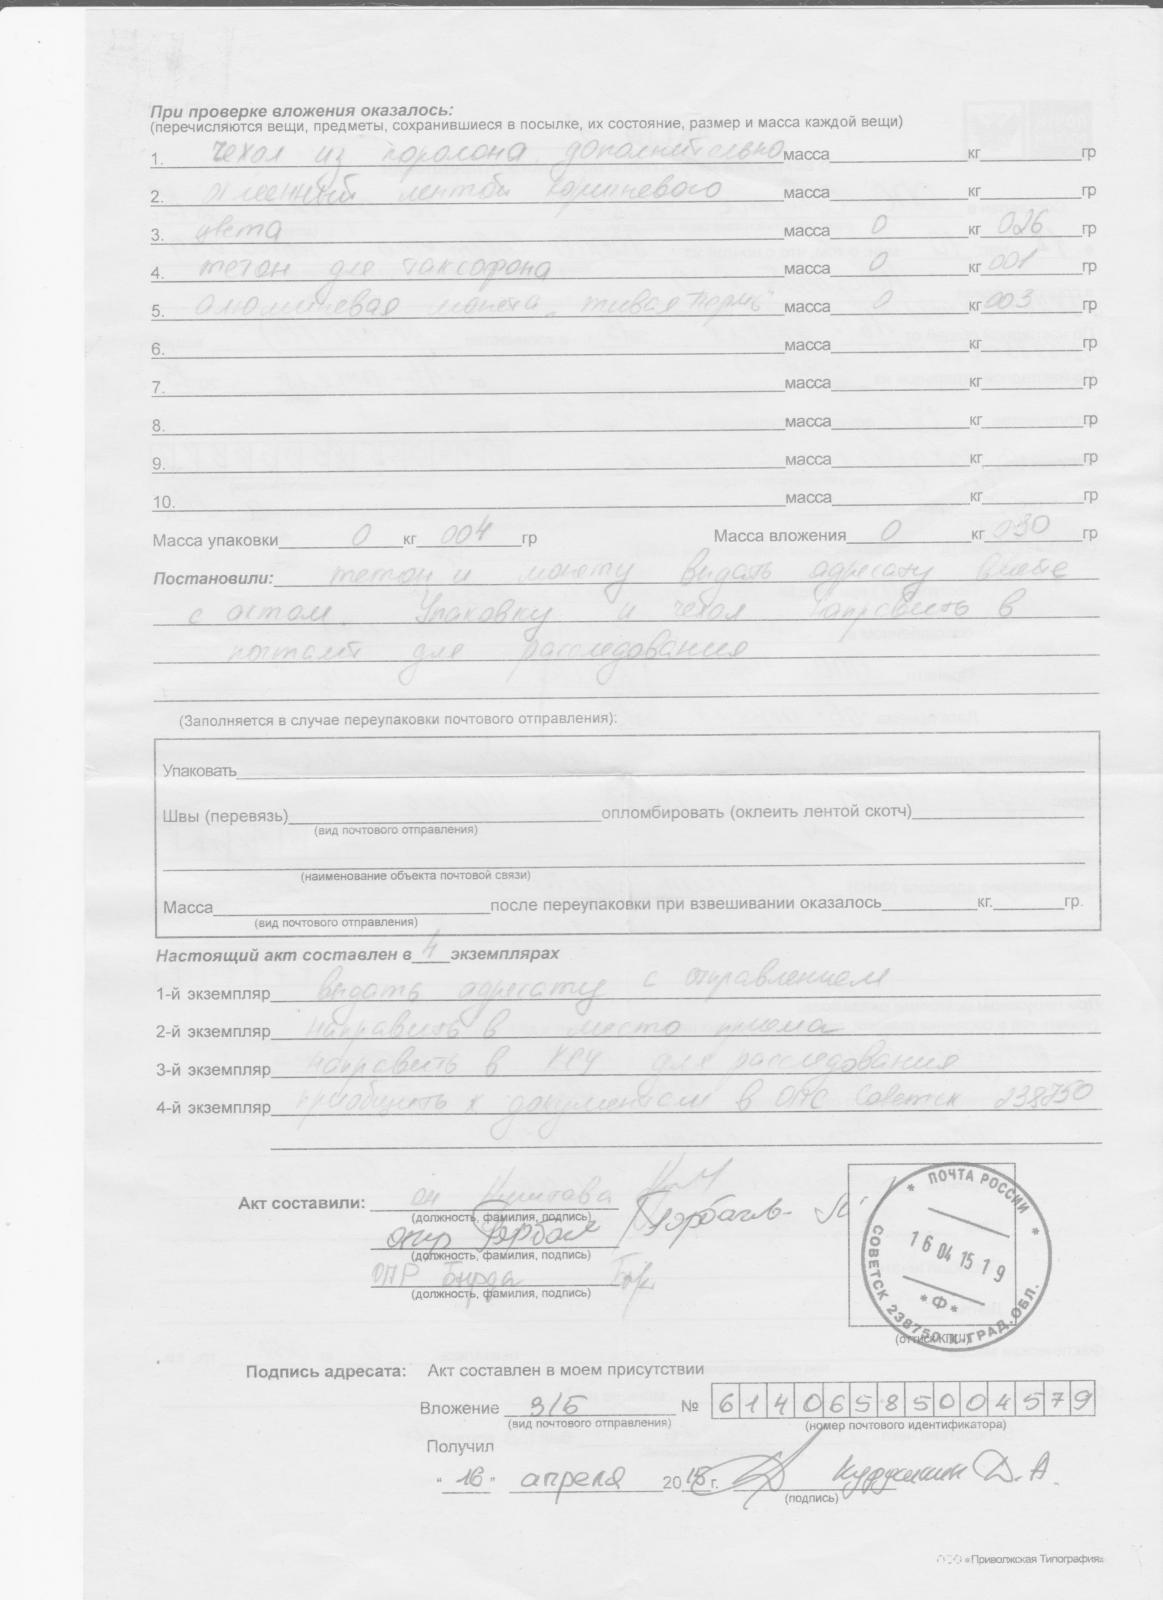 При проверке вложения оказалось:
(перечисляются вещи, предметы, сохранившиеся в посылке, их состояние, размер и масса каждой вещи)
1. чехол из поролона дополнительно масса кг гр
2. клеенный лентой коричневого масса кг гр
3. цвета масса 0 кг 026 гр
4. жетон для таксофона масса 0 кг 001 гр
5. алюминевая монета масса 0 кг 003 гр
6. масса кг гр
7. масса кг гр
8. масса кг гр
9. масса кг гр
10. масса кг гр
Масса упаковки 0 кг 004 гр Масса вложения 0 кг 030 гр
Постановили: жетон и монету выдать адресату вместе
с актом. Упаковку и чехол направить в
почтамт для расследования
(Заполняется в случае переупаковки почтового отправления):
Упаковать
Швы (перевязь) опломбировать (оклеить лентой скотч)
(вид почтового отправления)
(наименование объекта почтовой связи)
Масса после переупаковки при взвешивании оказалось кг. гр.
(вид почтового отправления)
Настоящий акт составлен в 4 экземплярах
1-й экземпляр выдать адресату с отправлением
2-й экземпляр направить в место приема
3-й экземпляр направить в для расследования
4-й экземпляр приобщить к документам в ОПС Советск 238750
Акт составили:
(должность, фамилия, подпись)
(должность, фамилия, подпись)
ОПР
(должность, фамилия, подпись)
* ПОЧТА РОССИИ *
16 04 15 19
*Ф*
СОВЕТСК 238750 К-ГРАД.ОБЛ.
(оттиск КПШ)
Подпись адресата: Акт составлен в моем присутствии
Вложение З/Б № 61406585004579
(вид почтового отправления) (номер почтового идентификатора)
Получил
"16" апреля 2015 г. Д.А.
(подпись)
ООО «Приволжская Типография»